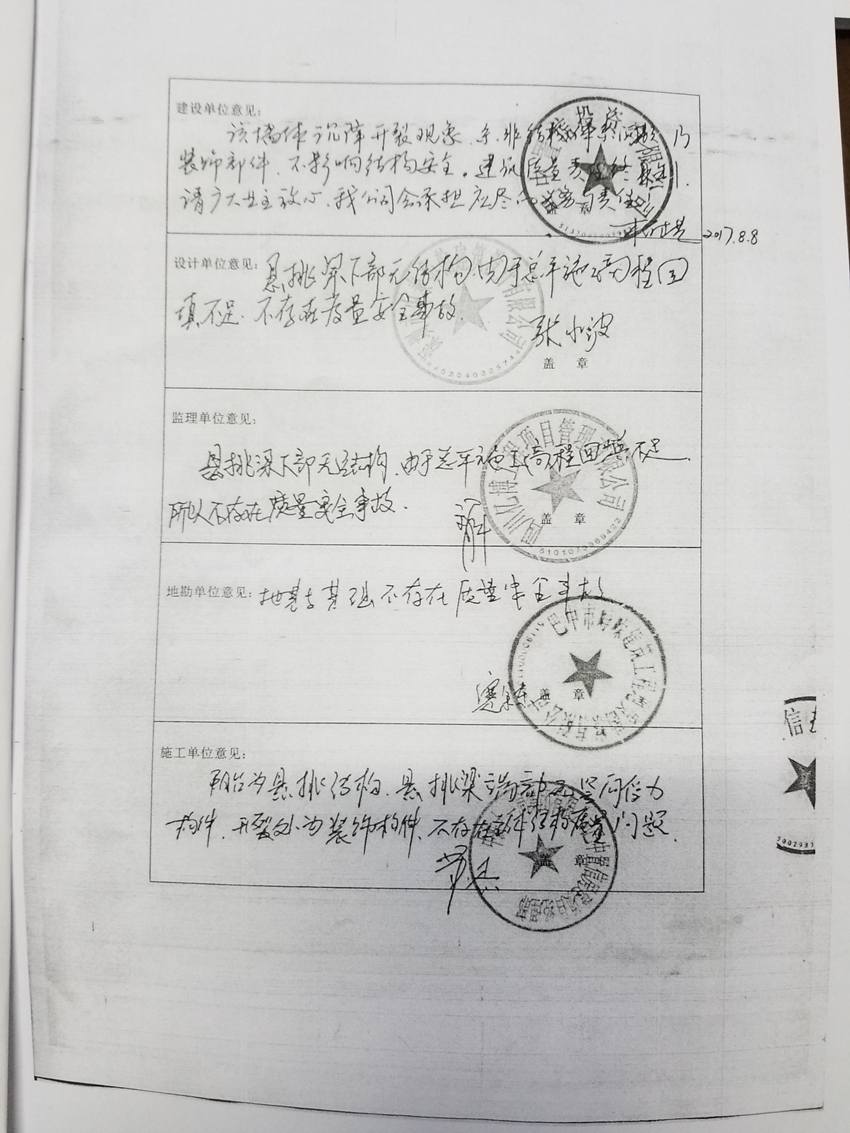 建设单位意见：
该墙体沉降开裂现象，系非结构体系问题，乃
装饰部件，不影响结构安全。建筑质量责任终
请广大业主放心，我们会承担应尽的义务与责任
2017.8.8
设计单位意见：悬挑梁下部无结构，由于总平施工高程回
填不足，不存在质量安全事故。
张小波
盖 章
监理单位意见：
悬挑梁下部无结构，由于总平施工高程回填不足，
所以不存在质量安全事故。
盖 章
四川亿博工程项目管理有限公司
地勘单位意见：地基与基础不存在质量安全事故
盖 章
施工单位意见：
阳台为悬挑结构，悬挑梁端部无竖向传力
构件，开裂处为装饰构件，不存在主体结构质量问题。
盖 章